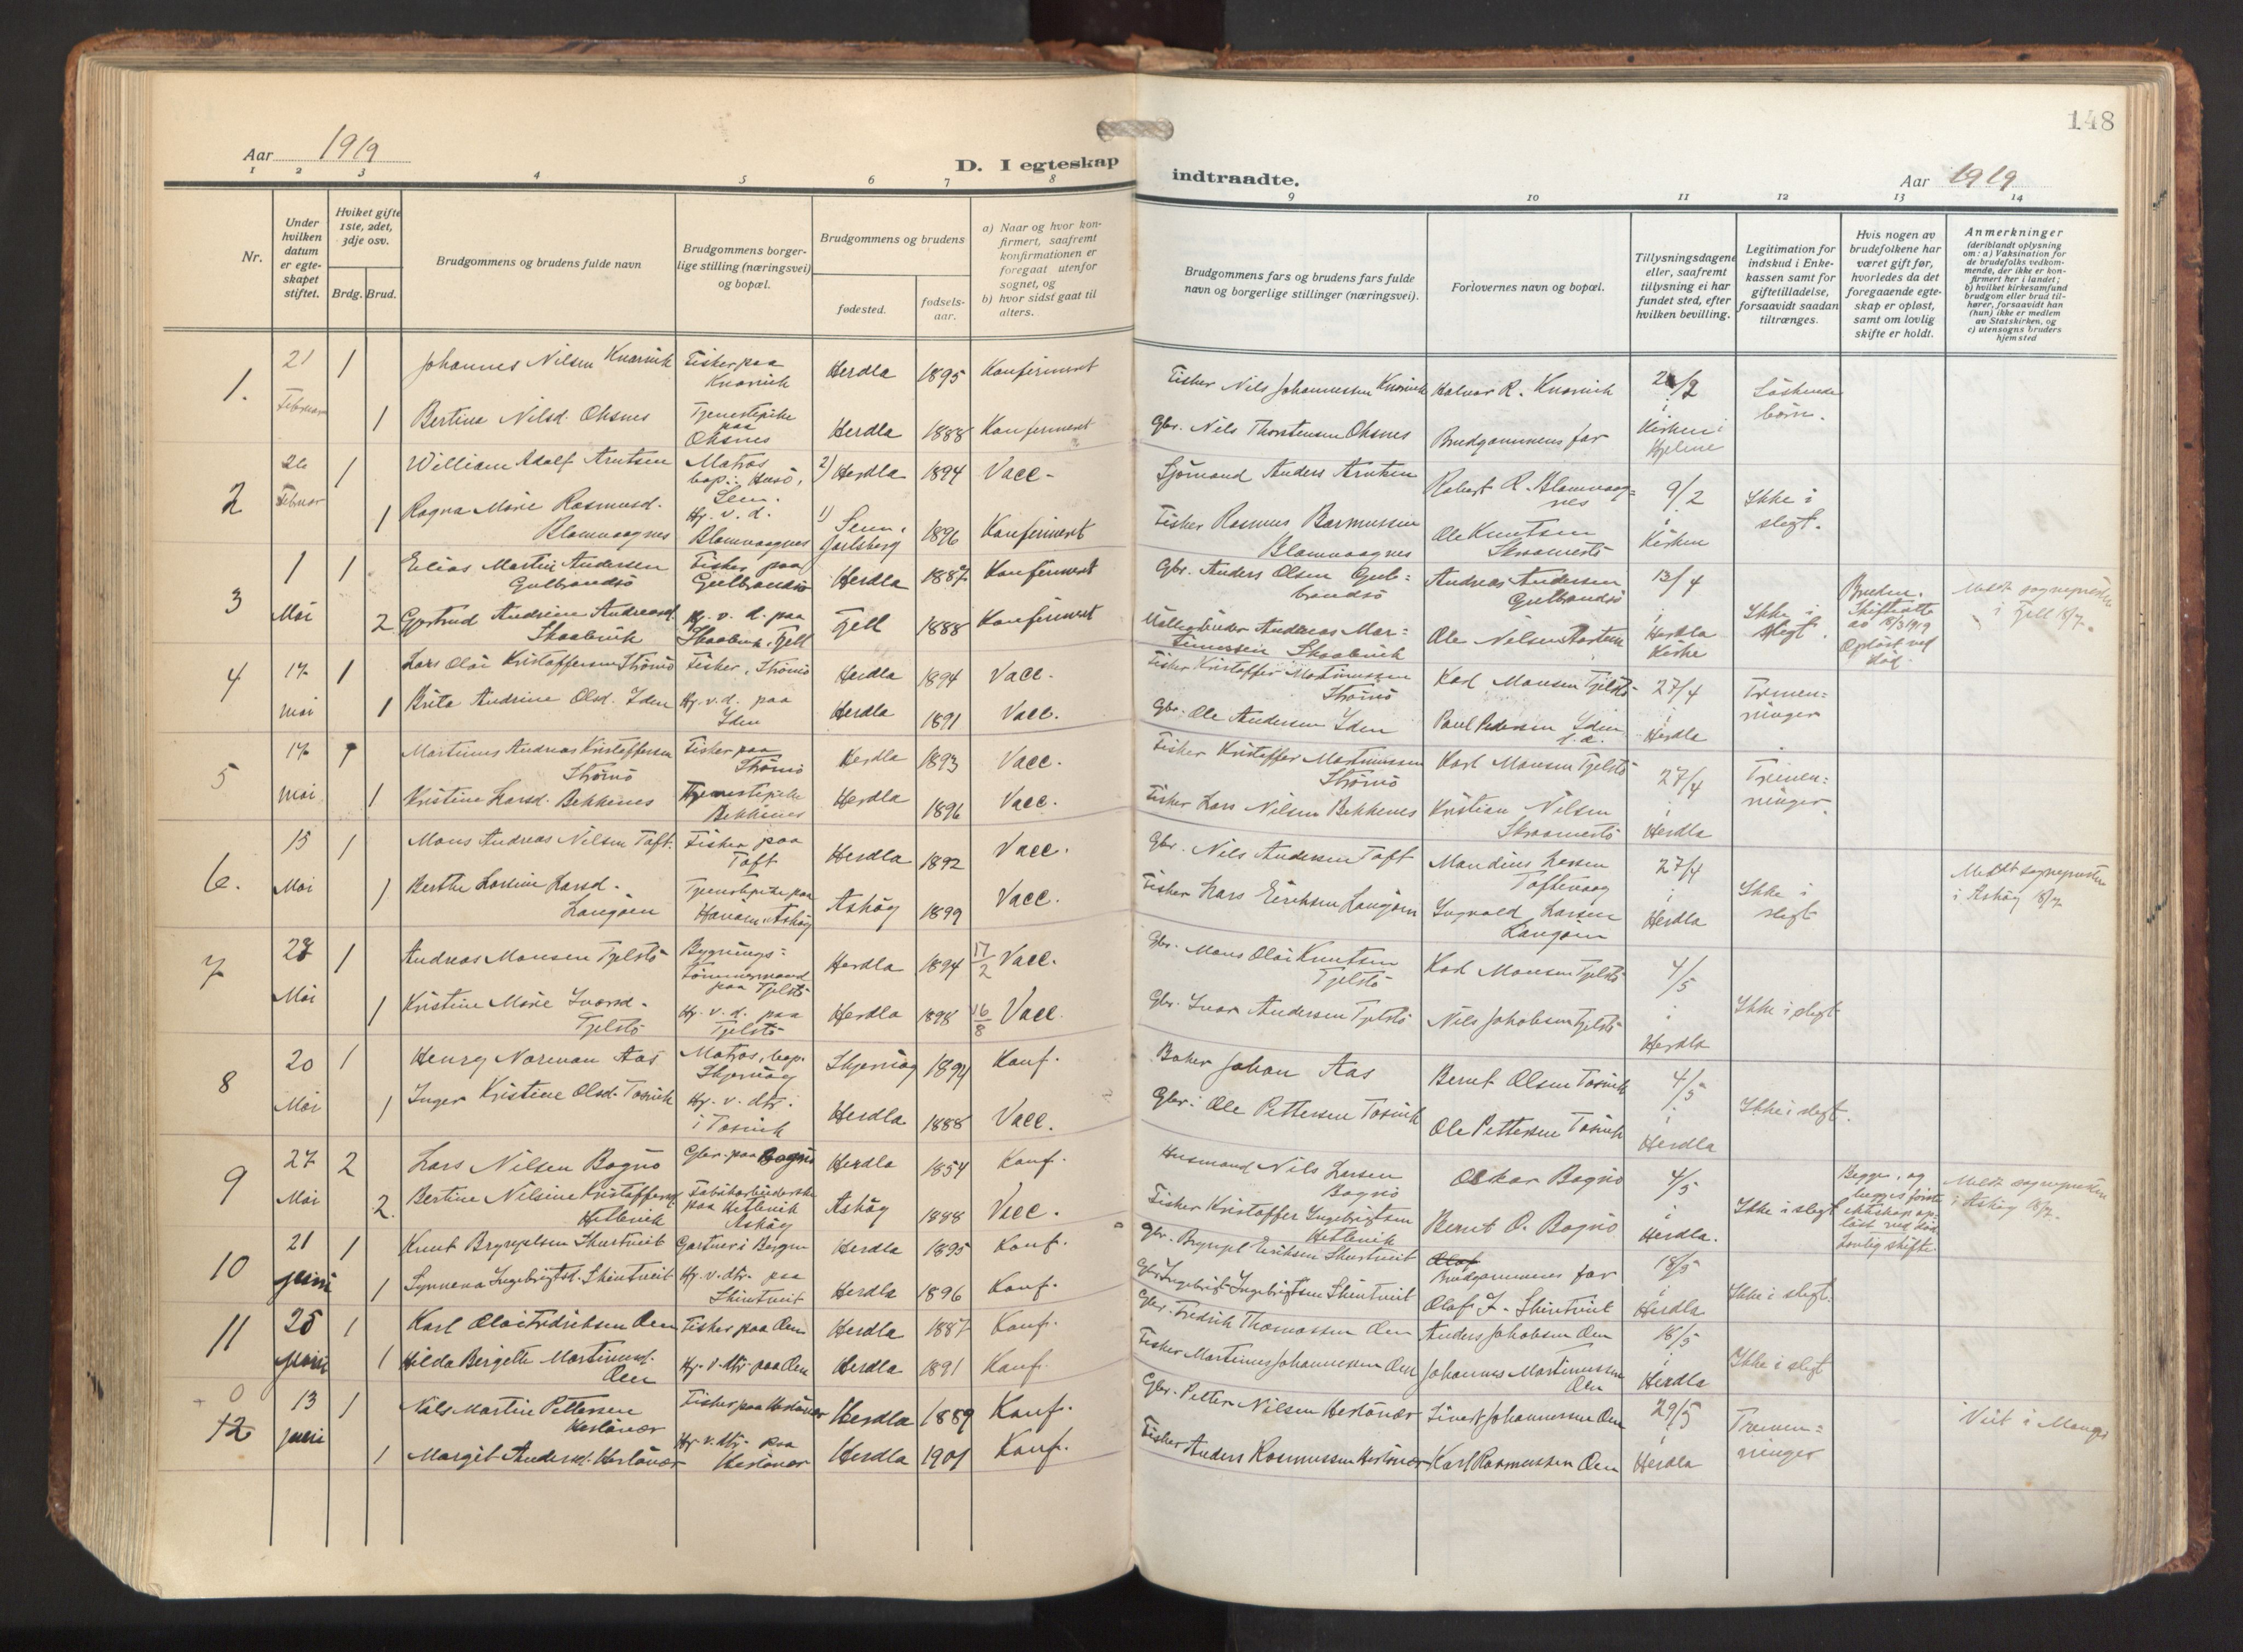 148
Aar 1919
D. I egteskap indtraadte.
Aar 1919
1 2 3 4 5 6 7 8 9 10 11 12 13 14
Nr.
Under hvilken datum er egteskapet stiftet.
Hvilket gifte 1ste, 2det, 3dje osv.
Brdg. Brud.
Brudgommens og brudens fulde navn
Brudgommens borgerlige stilling (næringsvei) og bopæl.
Brudgommens og brudens
fødested.
fødsels-aar.
a) Naar og hvor konfirmert, saafremt konfirmationen er foregaat utenfor sognet, og
b) hvor sidst gaat til alters.
Brudgommens fars og brudens fars fulde navn og borgerlige stillinger (næringsvei).
Forlovernes navn og bopæl.
Tillysningsdagene eller, saafremt tillysning ei har fundet sted, efter hvilken bevilling.
Legitimation for indskud i Enkekassen samt for giftetilladelse, forsaavidt saadan tiltrænges.
Hvis nogen av brudefolkene har været gift før, hvorledes da det foregaaende egteskap er opløst, samt om lovlig skifte er holdt.
Anmerkninger
(deriblandt oplysning om: a) Vaksination for de brudefolks vedkommende, der ikke er konfirmert her i landet; b) hvilket kirkesamfund brudgom eller brud tilhører, forsaavidt han (hun) ikke er medlem av Statskirken, og c) utensogns bruders hjemsted
1. 21 Februar 1 Johannes Nilsen Knarvik Fisker paa Knarvik Herdla 1895 Konfirmert Fisker Nils Johannessen Knarvik Halvor R. Knarvik 2/2 i Kirken i Hjelme Söskendebörn.
1 Bertina Nilsd. Oksnes Tjenestepike paa Oksnes Herdla 1888 Konfirmert Gbr. Nils Thorstensen Oksnes Brudgommens far
2 26 Februar 1 William Adolf Arntsen Matros bop.: Husö, Sem. 2) Herdla 1894 Vacc. Sjömand Anders Arntsen Robert R. Blomvaagnes 9/2 i Kirken Ikke i slegt.
1 Ragna Marie Rasmusd. Blomvaagnes Hj. v. d. Blomvaagnes 1) Sem. Jarlsberg 1896 Konfirmert Fisker Rasmus Rasmussen Blomvaagnes Ole Knutsen Skraamestö
3 1 Mai 1 Elias Martin Andersen Gulbrandsö Fisker paa Gulbrandsö Herdla 1887 Konfirmert Gbr. Anders Olsen Gulbrandsö Andreas Andersen Gulbrandsö 13/4 i Herdla Kirke Ikke i slegt. Bruden. Skifteatte av 18/3 1919 Oplöst ved död. Meldt sognepresten i Fjell 18/7.
2 Gjertrud Andrine Andreasd. Skaalevik Hj. v. d. paa Skaalevik, Fjell Fjell 1888 Konfirmert Andreas Martinussen Skaalevik Ole Nilsen
4 17 mai 1 Lars Olai Kristoffersen Strömö Fisker, Strömö Herdla 1894 Vacc. Fisker Kristoffer Martinussen Strömö Karl Monsen Tjelstö 27/4 i Herdla Tremenninger
1 Brita Andrine Olsd. Iden Hj. v. d. paa Iden Herdla 1891 Vacc. Gbr. Ole Andersen Iden Paul Pedersen Iden
5 17 mai 1 Martinus Andreas Kristoffersen Strömö Fisker paa Strömö Herdla 1893 Vacc. Fisker Kristoffer Martinussen Strömö Karl Monsen Tjelstö 27/4 i Herdla Tremenninger.
1 Kristine Larsd. Bekkenes Tjenestepike Bekkenes Herdla 1896 Vacc. Fisker Lars Nilsen Bekkenes Kristian Nilsen Skraamestö
6. 15 Mai 1 Mons Andreas Nilsen Toft. Fisker paa Toft Herdla 1892 Vacc. Gbr. Nils Andersen Toft Mandius Larsen Toftevaag 27/4 i Herdla Ikke i slegt Meldt sognepresten i Askøy 18/7
1 Berthe Larsine Larsd. Langöen Tjenestepike paa Askøy Askøy 1899 Vacc. Fisker Lars Eriksen Langöen Ingvald Larsen Langöen
7 28 Mai 1 Andreas Monsen Tjelstö Bygnings-tömmermand paa Tjelstö Herdla 1894 17/2 Vacc. Gbr. Mons Olai Knutsen Tjelstö Karl Monsen Tjelstö 4/5 i Herdla Ikke i slegt
1 Kristine Marie Ivarsd. Tjelstö Hj. v. d. paa Tjelstö Herdla 1898 16/8 Vacc. Gbr. Ivar Andersen Tjelstö Nils Jakobsen Tjelstö
8 20 Mai 1 Henry Norman Aas Matros, bop. Skjervøy Skjervøy 1894 Konf. Baker Johan Aas Bernt Olsen Tosvik 4/5 i Herdla Ikke i slegt.
1 Inger Kristine Olsd. Tosvik Hj. v. dtr. i Tosvik Herdla 1888 Vacc. Gbr. Ole Pettersen Tosvik Ole Pettersen Tosvik
9 27 Mai 2 Lars Nilsen Bognö Gbr. paa Bognö Herdla 1854 Konf. Husmand Nils Larsen Bognö Oskar Bognö 4/5 i Herdla. Ikke i slegt Begge, og begges förste ekteskap oplöst ved död Lovlig skifte. Meldt sognepresten i Askøy 18/7.
2. Bertine Nilsine Kristoffersd. Hetlevik Fabrikarbeiderske paa Hetlevik Askøy Askøy 1888 Vacc. Fisker Kristoffer Ingebrigtsen Hetlevik Bernt O. Bognö
10 21 juni 1 Knut Brynjelsen Skurtveit Gartner i Bergen Herdla 1895 Konf. Gbr. Brynjel Eriksen Skurtveit Olaf Brudgommens far 18/5 i Herdla Ikke i slegt.
1 Synneva Ingebrigtsd. Skurtveit Hj. v. dtr. paa Skurtveit Herdla 1896 Konf. Gbr. Ingebrigt Ingebrigtsen Skurtveit Olaf I. Skurtveit
11 25 juni 1 Karl Olai Fredriksen Oen Fisker paa Oen Herdla 1887 Konf. Gbr. Fredrik Thomassen Oen Anders Jakobsen Oen 18/5 i Herdla Ikke i slegt
1 Hilda Bergette Martinusd. Oen Hj. v. dtr. paa Oen Herdla 1891 Konf. Fisker Martinus Johannessen Oen Johannes Martinussen Oen
0 12 13 juni 1 Nils Martin Pettersen Herlövær Fisker paa Herlövær Herdla 1889 Konf. Gbr. Petter Nilsen Herlövær Sivert Johannessen Oen 29/5 i Herdla Tremenninger Viet i Manger
1 Margit Andersd. Herlövær Hj. v. dtr. paa Herlövær Herdla 1901 Konf. Fisker Anders Rasmussen Herlövær Karl Rasmussen Oen